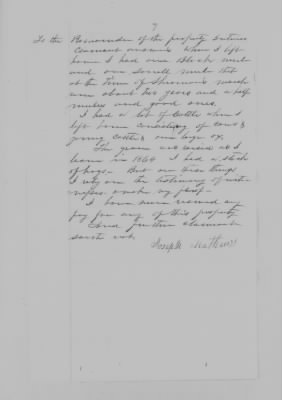 7
To the Remainder of the property Interro
Claimant answers When I left
home I had one Black mule
and one Sorrell mule that
at the time of Shermans march
was about two years and a half
mules and good ones.
I had a lot of Cattle when I
left home consisting of cows &
young cattle & one large ox.
The grain was raised as I
learn in 1864 I had a stock
of hogs - But on these things
I rely on the testimony of wit-
nesses make my proof -
I have never received any
pay for any of this property
And further claimant
saith not.
Joseph Mathews